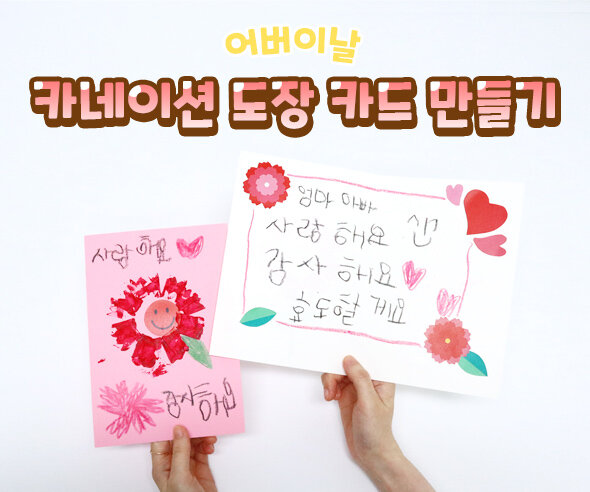 어버이날
카네이션 도장 카드 만들기
사랑해요
감사해요
엄마 아빠
사랑해요
감사해요
효도할게요